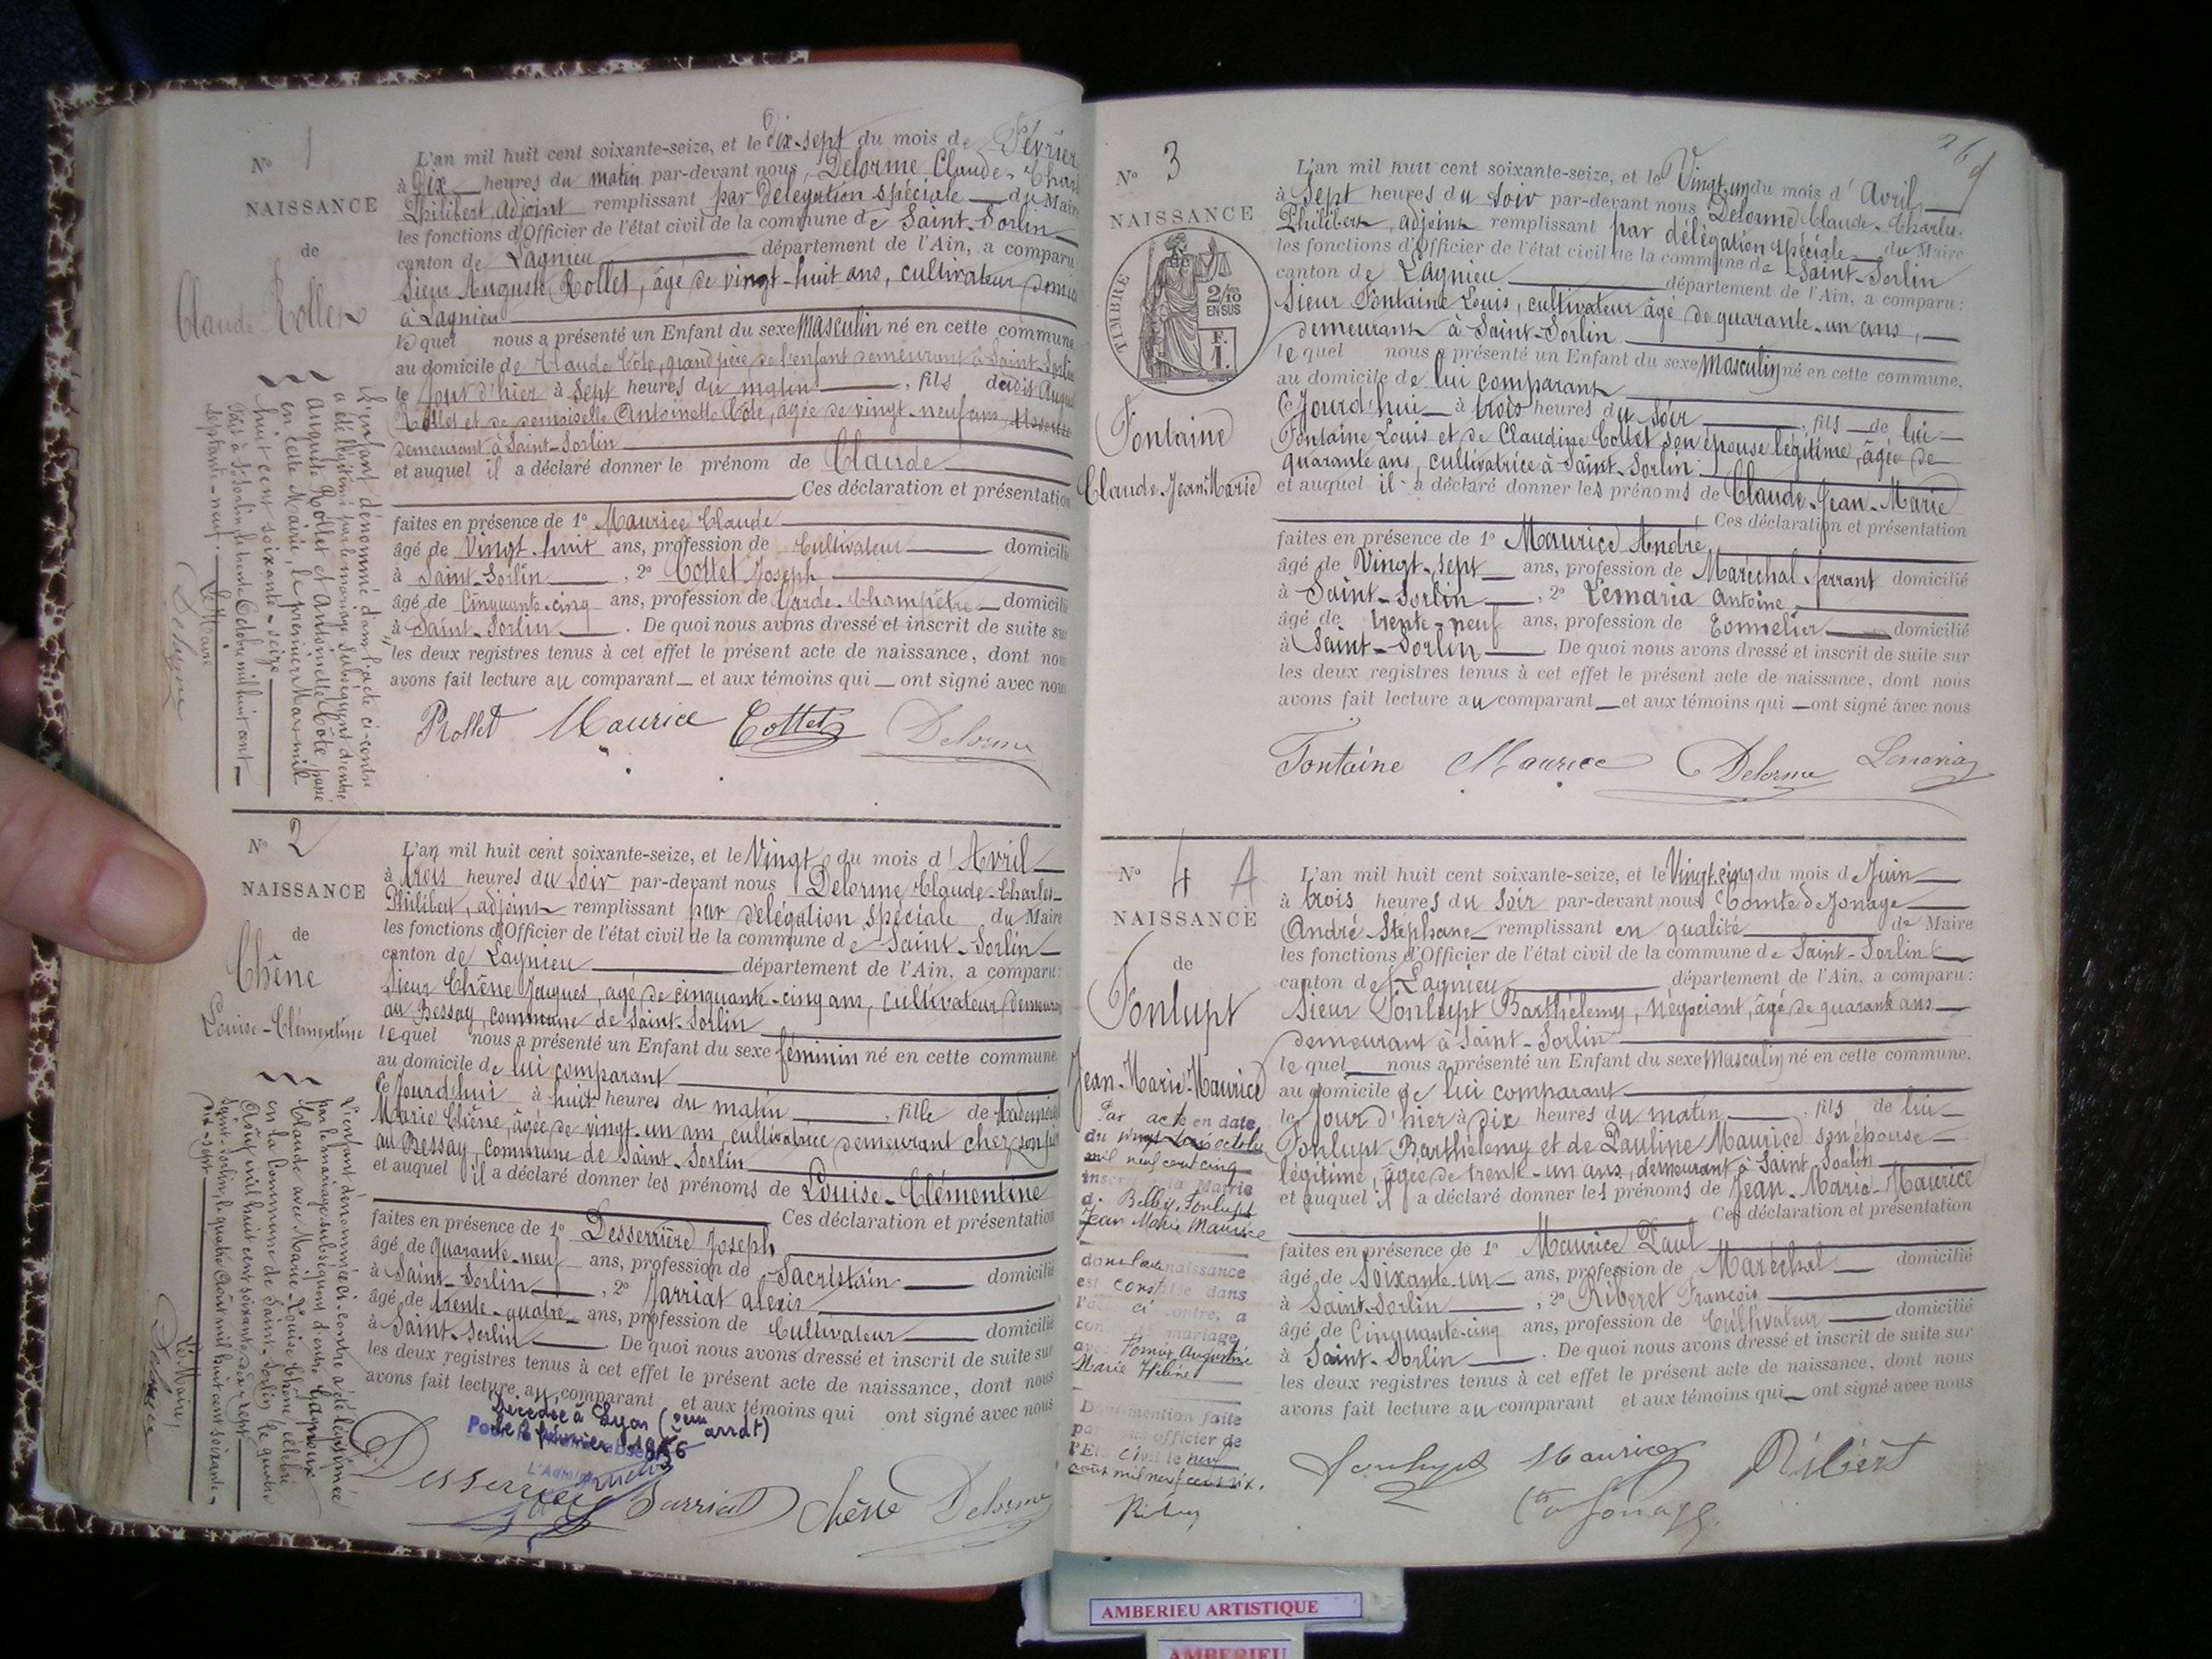 N° 1
NAISSANCE
de
Claude Rollet
L'an mil huit cent soixante-seize, et le dix-sept du mois de Février
à Dix heures du matin par-devant nous, Delorme Claude-Charl
Philibert adjoint remplissant par Délégation spéciale du Maire
les fonctions d'Officier de l'état civil de la commune de Saint-Sorlin
canton de Lagnieu département de l'Ain, a comparu
Sieur Auguste Rollet, âgé de vingt-huit ans, cultivateur domici
à Lagnieu
lequel nous a présenté un Enfant du sexe masculin né en cette commune
au domicile de Claude Côte, grand père de l'enfant demeurant à Saint-Sorlin
le Jour d'hier à Sept heures du matin, fils dudit August
Rollet et de demoiselle Antoinette Côte, âgée de vingt-neuf ans
demeurant à Saint-Sorlin
et auquel il a déclaré donner le prénom de Claude
Ces déclaration et présentation
faites en présence de 1° Maurice Claude
âgé de Vingt-huit ans, profession de Cultivateur domicilié
à Saint-Sorlin, 2° Cottet Joseph
âgé de Cinquante-cinq ans, profession de Garde-Champêtre domicilié
à Saint-Sorlin. De quoi nous avons dressé et inscrit de suite sur
les deux registres tenus à cet effet le présent acte de naissance, dont nous
avons fait lecture au comparant et aux témoins qui ont signé avec nous
Rollet Maurice Cottet Delorme
L'enfant dénommé dans l'acte ci-contre
a été légitimé par le mariage subséquent d'entre
Auguste Rollet et Antoinette Côte, passé
en cette Mairie, le premier Mars mil
huit cent soixante-seize
Fait à St Sorlin le trente Octobre mil huit cent
septante-neuf.
Le Maire
N° 2
NAISSANCE
de
Chêne
Louise-Clémentine
L'an mil huit cent soixante-seize, et le Vingt du mois d'Avril
à trois heures du Soir par-devant nous Delorme Claude-Charles
Philibert, adjoint remplissant par délégation spéciale du Maire
les fonctions d'Officier de l'état civil de la commune de Saint-Sorlin
canton de Lagnieu département de l'Ain, a comparu:
Sieur Chêne Jacques, âgé de cinquante-cinq ans, cultivateur demeurant
au Bessay, commune de Saint-Sorlin
lequel nous a présenté un Enfant du sexe féminin né en cette commune
au domicile de lui comparant
ce Jourd'hui à huit heures du matin, fille de Mademoiselle
Marie Chêne, âgée de vingt-un ans, cultivatrice demeurant chez son père
au Bessay, commune de Saint-Sorlin
et auquel il a déclaré donner les prénoms de Louise-Clémentine
Ces déclaration et présentation
faites en présence de 1° Desserrière Joseph
âgé de quarante-neuf ans, profession de Sacristain domicilié
à Saint-Sorlin, 2° Jarriat alexis
âgé de trente-quatre ans, profession de Cultivateur domicilié
à Saint-Sorlin De quoi nous avons dressé et inscrit de suite sur
les deux registres tenus à cet effet le présent acte de naissance, dont nous
avons fait lecture au comparant et aux témoins qui ont signé avec nous
Décédée à Lyon (arrdt)
Jarriat Chêne Delorme
L'enfant dénommée ci-contre a été légitimée
par le mariage subséquent d'entre
Claude avec Marie-Louise Chêne, célébré
en la Commune de Saint-Sorlin le quatre
Août mil huit cent soixante-dix-sept
Saint-Sorlin, le quatre Août mil huit cent soixante-
dix-sept
Le Maire,
N° 3
NAISSANCE
TIMBRE
2/10
EN SUS
F.
1.
Fontaine
Claude-Jean-Marie
L'an mil huit cent soixante-seize, et le Vingt-un du mois d'Avril
à Sept heures du Soir par-devant nous Delorme Claude-Charles
Philibert, adjoint remplissant par délégation spéciale du Maire
les fonctions d'Officier de l'état civil de la commune de Saint-Sorlin
canton de Lagnieu département de l'Ain, a comparu:
Sieur Fontaine Louis, cultivateur âgé de quarante-un ans,
demeurant à Saint-Sorlin
lequel nous a présenté un Enfant du sexe Masculin né en cette commune,
au domicile de lui comparant
ce Jourd'hui à trois heures du Soir, fils de lui
Fontaine Louis et de Claudine Cottet son épouse légitime, âgée de
quarante ans, cultivatrice à Saint-Sorlin
et auquel il a déclaré donner les prénoms de Claude-Jean-Marie
Ces déclaration et présentation
faites en présence de 1° Maurice André
âgé de Vingt-sept ans, profession de Maréchal-ferrant domicilié
à Saint-Sorlin, 2° Lemaria Antoine
âgé de trente-neuf ans, profession de Tonnelier domicilié
à Saint-Sorlin. De quoi nous avons dressé et inscrit de suite sur
les deux registres tenus à cet effet le présent acte de naissance, dont nous
avons fait lecture au comparant et aux témoins qui ont signé avec nous
Fontaine Maurice Delorme
N° 4 A
NAISSANCE
de
Fonlupt
Jean-Marie-Maurice
Par acte en date
du vingt trois octobre
mil neuf cent cinq
inscrit à la Mairie
de Belley, Fonlupt
Jean Marie Maurice
dont la naissance
est constatée dans
l'acte ci contre, a
contracté mariage
avec
Marie Hélène
Dont mention faite
par officier de
l'Etat Civil le neuf
août mil neuf cent six.
L'an mil huit cent soixante-seize, et le Vingt-cinq du mois de Juin
à trois heures du Soir par-devant nous Comte de Jonage
André-Stéphane remplissant en qualité de Maire
les fonctions d'Officier de l'état civil de la commune de Saint-Sorlin
canton de Lagnieu département de l'Ain, a comparu:
Sieur Fonlupt Barthélemy, Négociant, âgé de quarante ans
demeurant à Saint-Sorlin
lequel nous a présenté un Enfant du sexe Masculin né en cette commune,
au domicile de lui comparant
le Jour d'hier à dix heures du matin, fils de lui
Fonlupt Barthélemy et de Pauline Maurice son épouse
légitime, âgée de trente-un ans, demeurant à Saint Sorlin
et auquel il a déclaré donner les prénoms de Jean-Marie-Maurice
Ces déclaration et présentation
faites en présence de 1° Maurice Paul
âgé de Soixante-un ans, profession de Maréchal domicilié
à Saint-Sorlin, 2° Riberet François
âgé de Cinquante-cinq ans, profession de Cultivateur domicilié
à Saint-Sorlin. De quoi nous avons dressé et inscrit de suite sur
les deux registres tenus à cet effet le présent acte de naissance, dont nous
avons fait lecture au comparant et aux témoins qui ont signé avec nous
Fonlupt Maurice
Cte de Jonage
AMBERIEU ARTISTIQUE
AMBERIEU